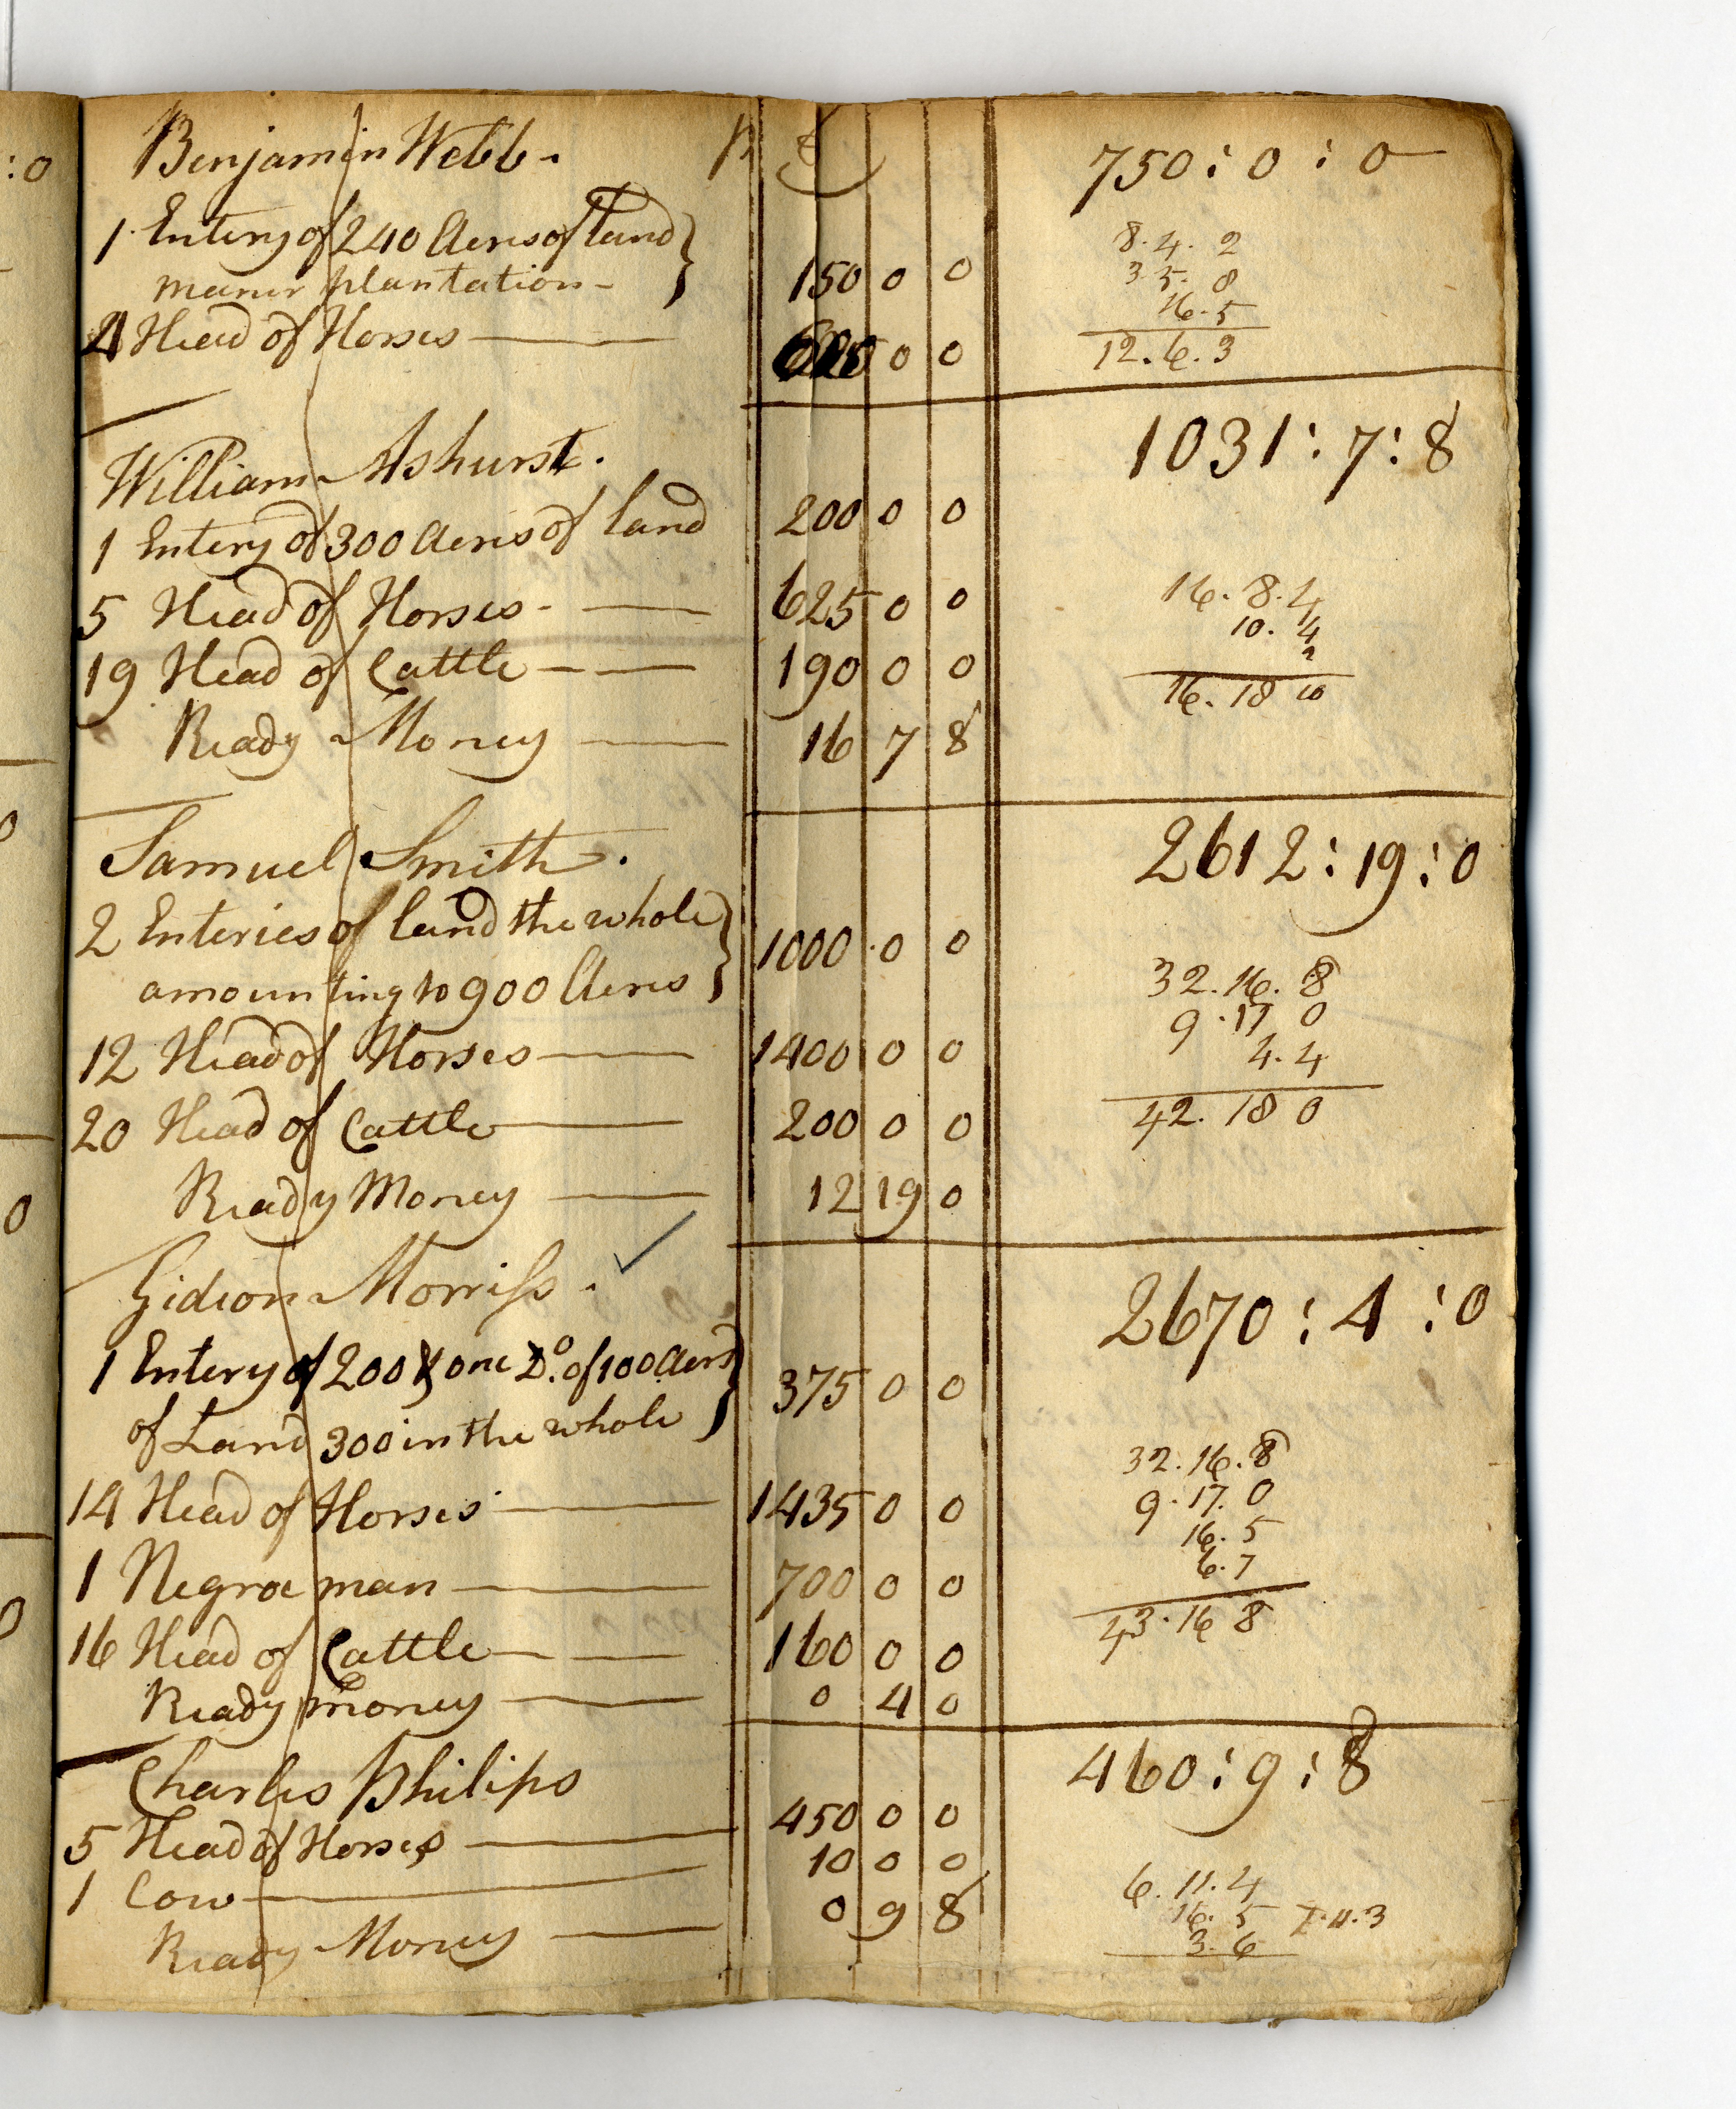 :0
Benjamin Webb - £ 750 : 0 : 0
1 Entery of 240 Acres of land
maner plantation - 150 0 0
4 Head of Horses 0 0
8. 4. 2
3 5. 8
16. 5
12. 6. 3
William Ashurst. 1031 : 7 : 8
1 Entery of 300 Acres of land 200 0 0
5 Head of Horses - 625 0 0
19 Head of Cattle - 190 0 0
Ready Money 16 7 8
16. 8. 4
10. 4
2
16. 18 10
Samuel Smith. 2612 : 19 : 0
2 Enteries of land the whole
amounting to 900 Acres 1000 0 0
12 Head of Horses 1400 0 0
20 Head of Cattle 200 0 0
Ready Money 12 19 0
32. 16. 8
9. 17 0
4. 4
42. 18 0
Gideon Morriss. 2670 : 4 : 0
1 Entery of 200 & one Do. of 100 Acres
of Land 300 in the whole 375 0 0
14 Head of Horses 1435 0 0
1 Negroe man 700 0 0
16 Head of Cattle 160 0 0
Ready money 0 4 0
32. 16. 8
9. 17. 0
16. 5
6. 7
43. 16 8
Charles Philips 460 : 9 : 8
5 Head of Horses 450 0 0
1 Cow 10 0 0
Ready Money 0 9 8
6. 11. 4
16. 5 7. 11. 3
3. 6